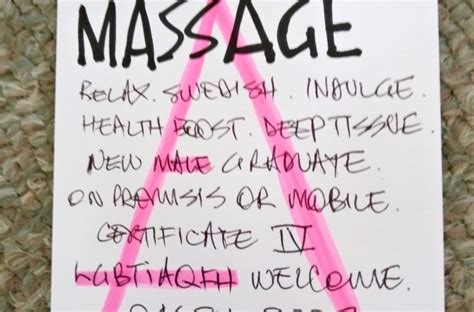 MASSAGE
RELAX. SWEDISH. INDULGE.
HEALTH BOOST. DEEP TISSUE.
NEW MALE GRADUATE.
ON PREMISIS OR MOBILE.
CERTIFICATE IV
LGBTIAQFH WELCOME.